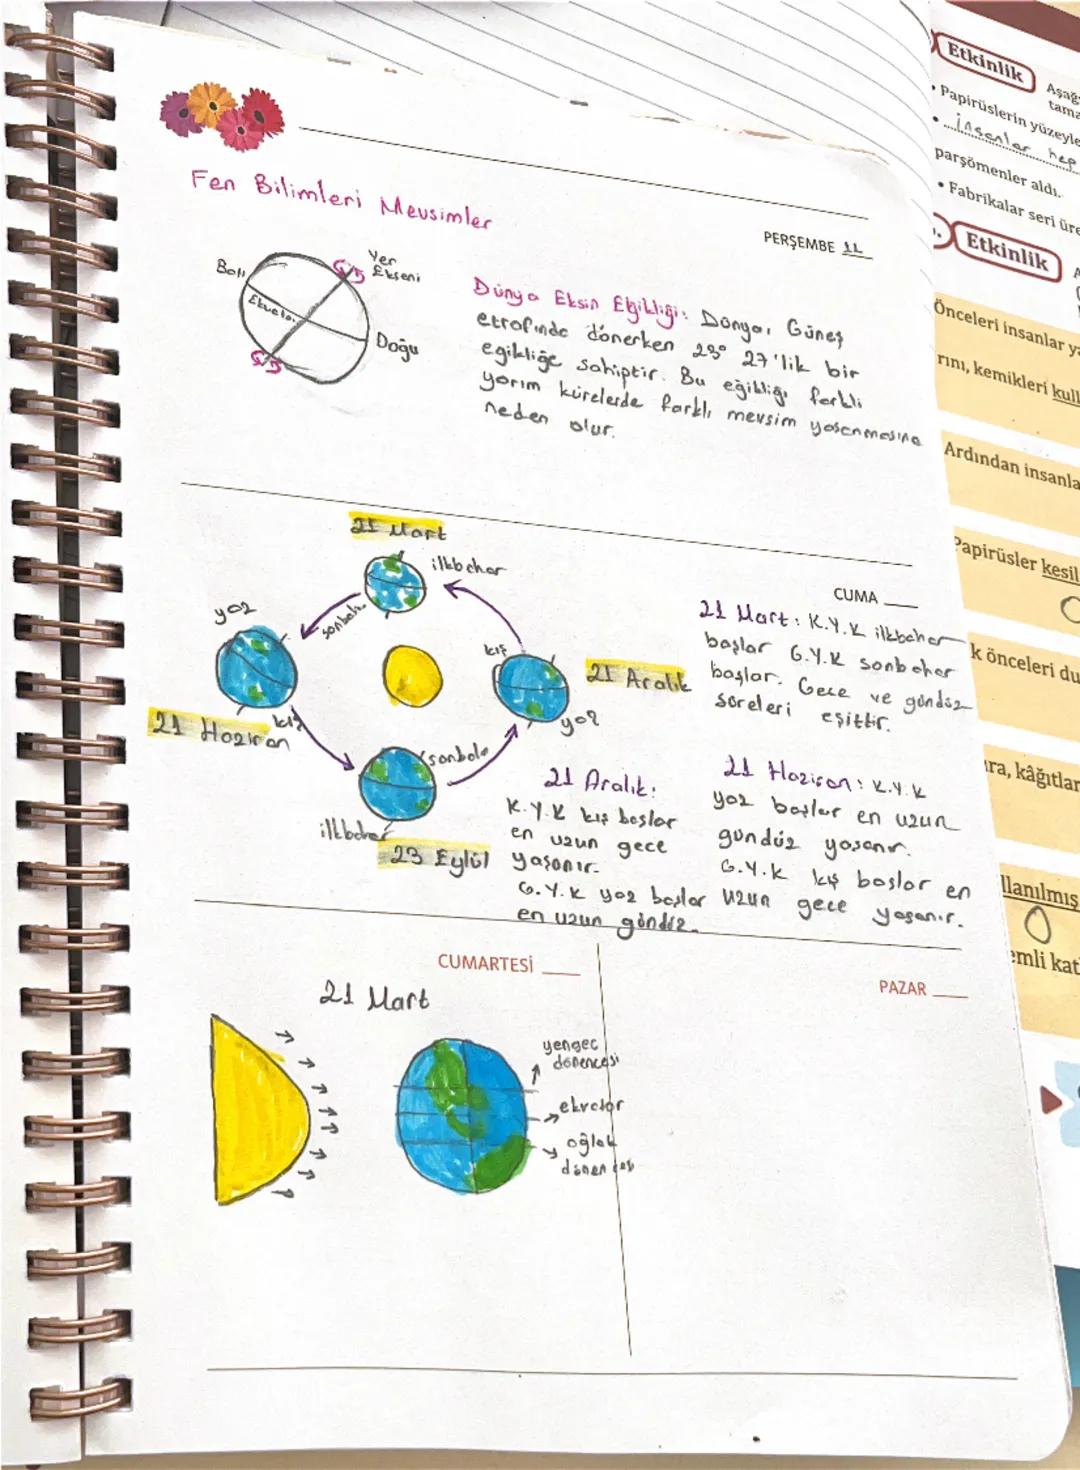 Fen Bilimleri Mevsimler
PERŞEMBE 11
Yer
Ekseni
Batı
Ekvator
Doğu
Dünya Eksin Eğikliği: Dünya, Güneş
etrafında dönerken 23° 27'lik bir
egikliğe sahiptir. Bu eğikliği farklı
yarım kürelerde farklı mevsim yaşanmasına
neden olur.
21 Mart
ilkbahar
sonbahar
yaz
kış
21 Aralık
yaz
21 Haziran
kış
sonbaha
ilkbahar
23 Eylül
CUMA
21 Mart: K.Y.K ilkbahar
başlar G.Y.K sonbahar
başlar. Gece ve gündüz
süreleri eşittir.
21 Aralık:
K.Y.K kış başlar
en uzun gece
yaşanır.
G.Y.K yaz başlar
en uzun gündüz.
21 Haziran: K.Y.K
yaz başlar en uzun
gündüz yaşanır.
G.Y.K kış başlar en
uzun gece yaşanır.
CUMARTESİ
21 Mart
yengeç
dönencesi
ekvator
oğlak
dönencesi
PAZAR
Etkinlik
Aşağ
tama
• Papirüslerin yüzeyle
• insanlar hep
parşömenler aldı.
• Fabrikalar seri üre
Etkinlik
Önceleri insanlar ya
rını, kemikleri kull
Ardından insanla
Papirüsler kesil
k önceleri du
ra, kâğıtlar
llanılmış
emli kat